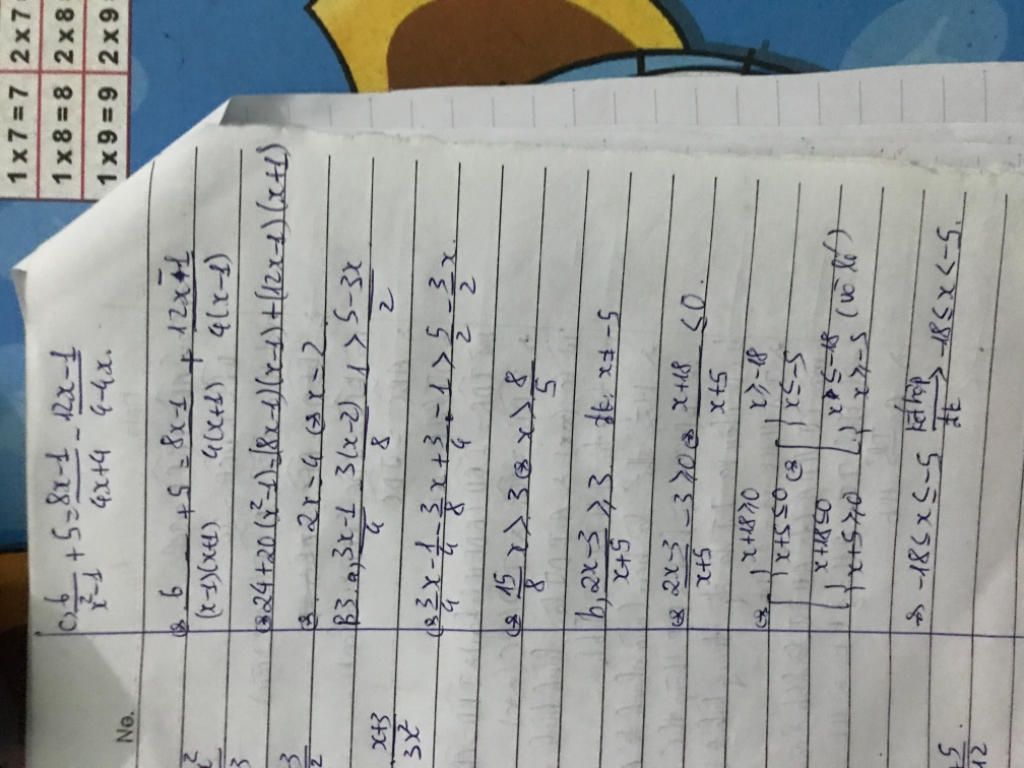 1 x 7 = 7 2 x 7 =
1 x 8 = 8 2 x 8
1 x 9 = 9 2 x 9
No.
c. 6/(x²-1) + 5 = (8x-1)/(4x+4) - (12x-1)/(4-4x)
⇔ 6/((x-1)(x+1)) + 5 = (8x-1)/(4(x+1)) + (12x-1)/(4(x-1))
⇔ 24+20(x²-1)=(8x-1)(x-1)+(12x-1)(x+1)
⇔ 2x=-4 ⇔ x=-2
B3. a, (3x-1)/4 - (3(x-2))/8 - 1 > (5-3x)/2
⇔ 3/4 x - 1/4 - 3/8 x + 3/4 - 1 > 5/2 - 3/2 x.
⇔ 15/8 x > 3 ⇔ x > 8/5
b, (2x-3)/(x+5) ≥ 3 đk: x ≠ -5
⇔ (2x-3)/(x+5) - 3 ≥ 0 ⇔ (x+18)/(x+5) ≤ 0.
⇔ [ { x+18≥0 x ≥ -18
{ x+5≤0 ⇔ [ { x ≤ -5
{ x+18≤0 { x ≤ -18
{ x+5≥0 { x ≥ -5 (vô lí)
⇔ -18 ≤ x ≤ -5 kết hợp đk -18 ≤ x < -5.
x²
3
3
2
x+3
3x²
+5
12